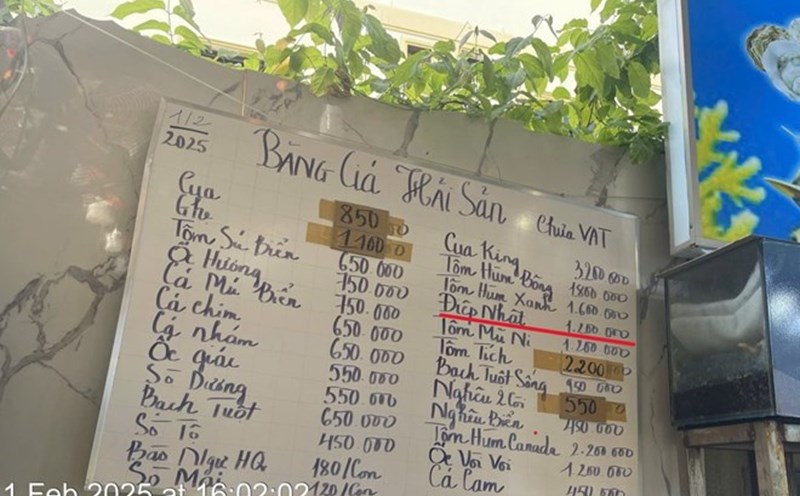 1/2
2025
BẢNG Giá HẢI SẢN
Chưa VAT
Cua 850
Ghẹ 1.100
Tôm Sú Biển 650.000
Ốc Hương 750 000
Cá Mú Biển 750.000
Cá chim 650.000
Cá nhám 650.000
Ốc giác 550.000
Sò Dương 550 000
Bạch Tuột 650 000
Sò Tộ 450 000
Bào Ngư HQ 180/Con
Sò Mai 120/Con
Cua King 3.200 000
Tôm Hùm Bông 1800 000
Tôm Hùm Xanh 1.600 000
Điệp Nhật 1.200 000
Tôm Mũ Ni 1.200 000
Tôm Tích 2.200
Bạch Tuột Sống 950 000
Nghêu 2 Cồi 550
Nghêu Biển 450 000
Tôm Hùm Canada 2.200 000
Ốc Vòi Voi 1 200 000
Cá Cam 450 000
1 Feb 2025 at 16:02:02